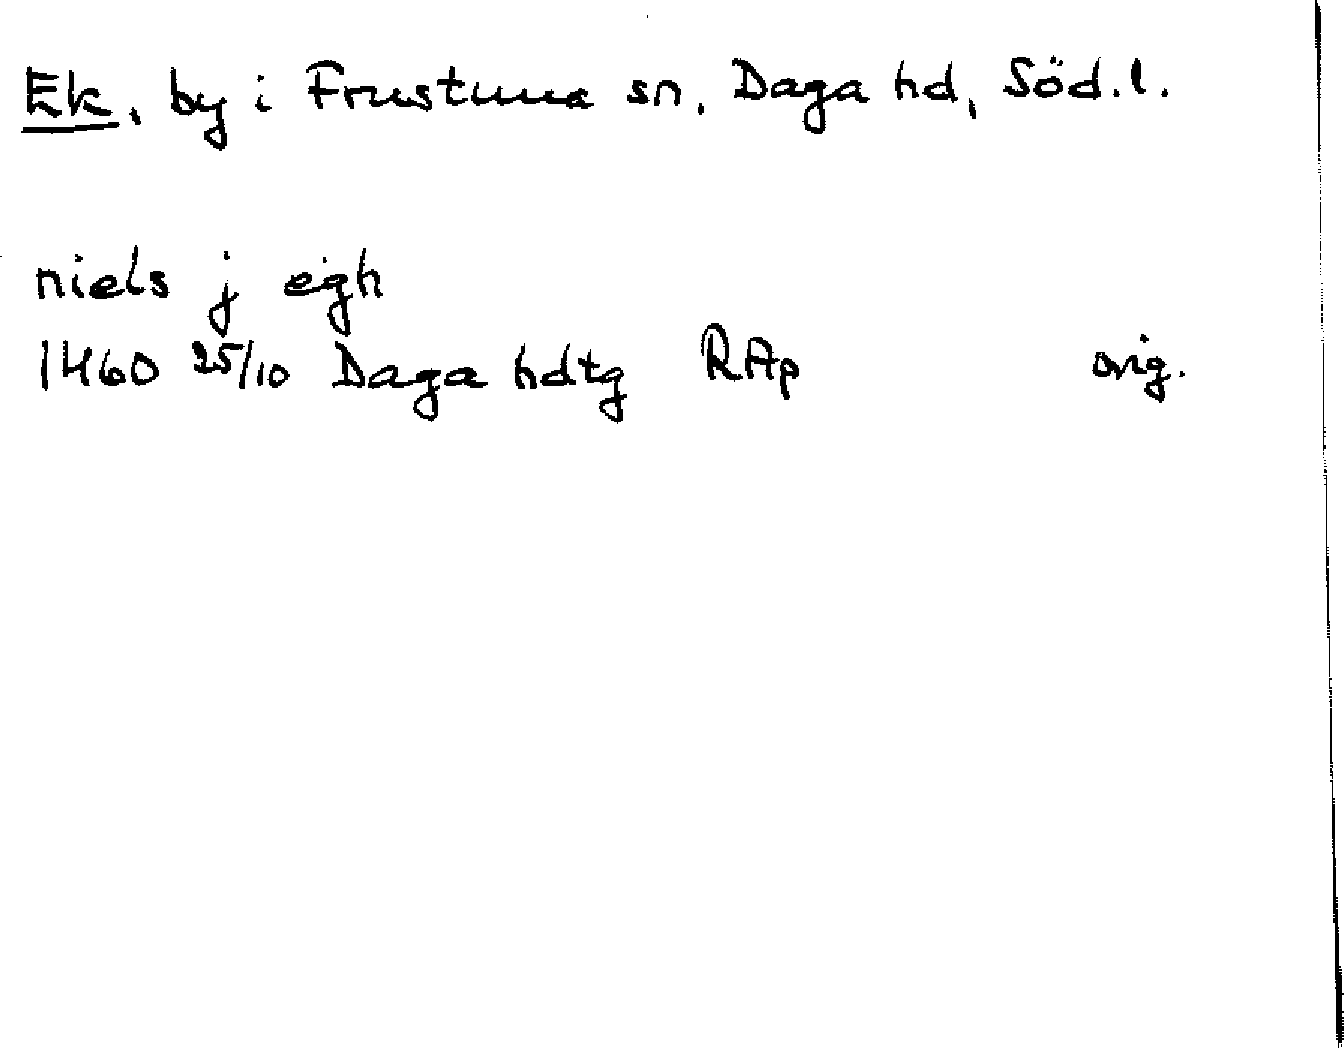 Ek, by i Frustuna sn, Daga hd, Söd.l.
niels j egh
1460 25/10 Daga hdtg RAp orig.